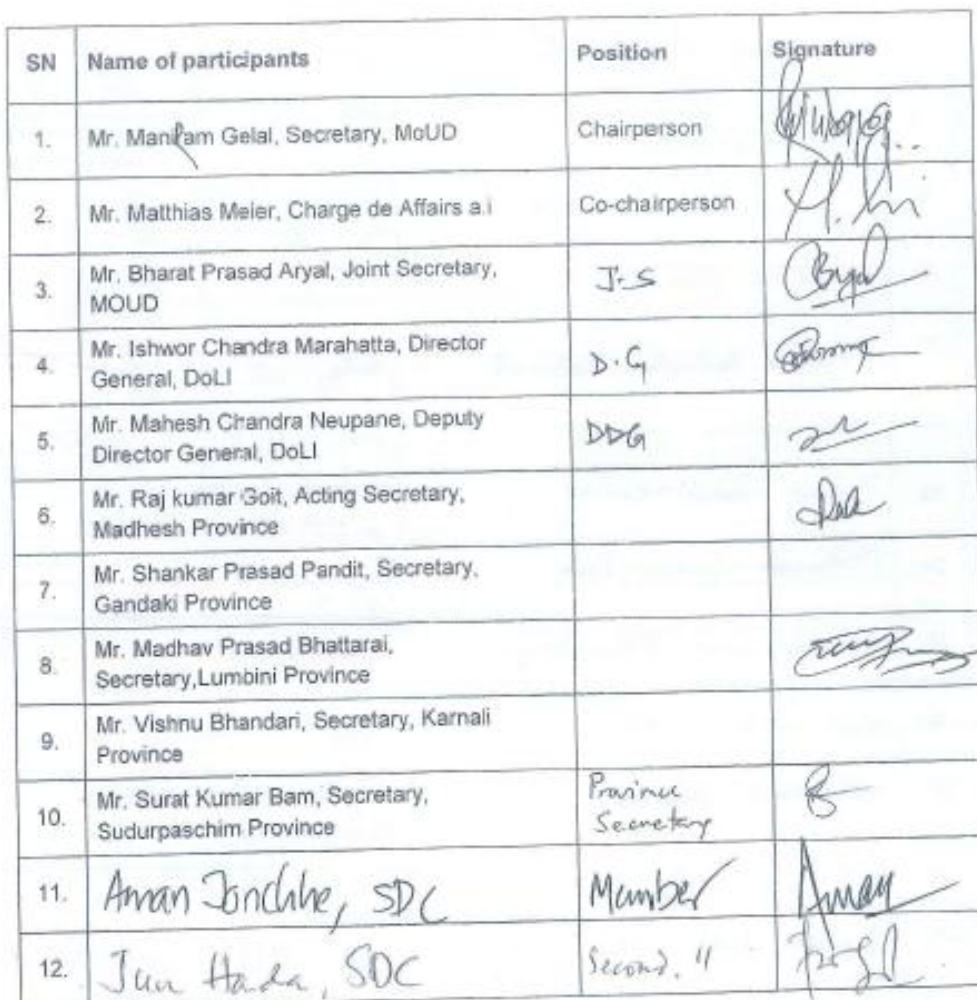 SN Name of participants Position Signature
1. Mr. Maniram Gelal, Secretary, MoUD Chairperson
2. Mr. Matthias Meier, Charge de Affairs a.i Co-chairperson
3. Mr. Bharat Prasad Aryal, Joint Secretary, J.S
MOUD
4. Mr. Ishwor Chandra Marahatta, Director D.G
General, DoLI
5. Mr. Mahesh Chandra Neupane, Deputy DDG
Director General, DoLI
6. Mr. Raj kumar Goit, Acting Secretary,
Madhesh Province
7. Mr. Shankar Prasad Pandit, Secretary,
Gandaki Province
8. Mr. Madhav Prasad Bhattarai,
Secretary,Lumbini Province
9. Mr. Vishnu Bhandari, Secretary, Karnali
Province
10. Mr. Surat Kumar Bam, Secretary, Province
Sudurpaschim Province Secretary
11. Aman Jonchhe, SDC Member Aman
12. Jun Hada, SDC